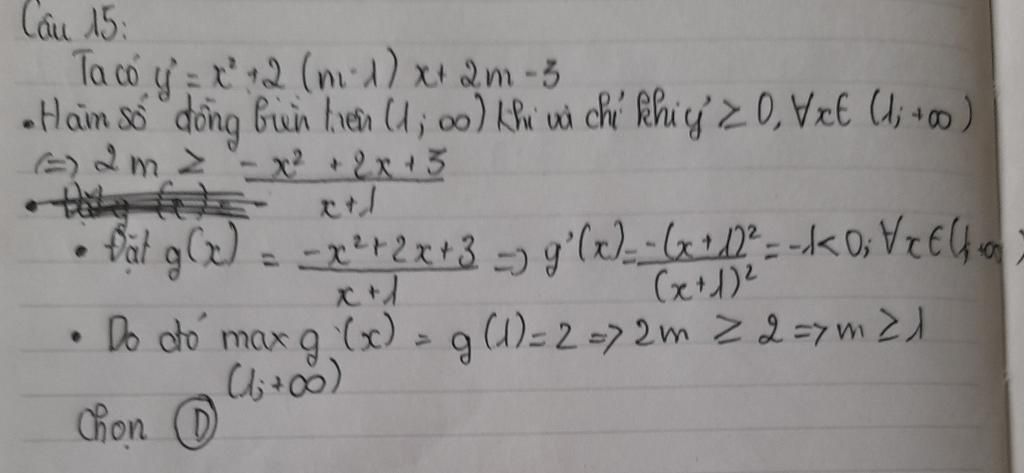 Câu 15:
Ta có y' = x² + 2 (m-1) x + 2m - 3
• Hàm số đồng biến trên (1; ∞) khi và chỉ khi y' ≥ 0, ∀x∈ (1; +∞)
<=> 2m ≥ (-x² + 2x + 3)/(x+1)
• Đặt g(x) = (-x² + 2x + 3)/(x+1) => g'(x) = (-(x+1)²)/((x+1)²) = -1 < 0, ∀x∈(1; +∞)
• Do đó max g(x) = g(1) = 2 => 2m ≥ 2 => m ≥ 1
(1; +∞)
Chọn D